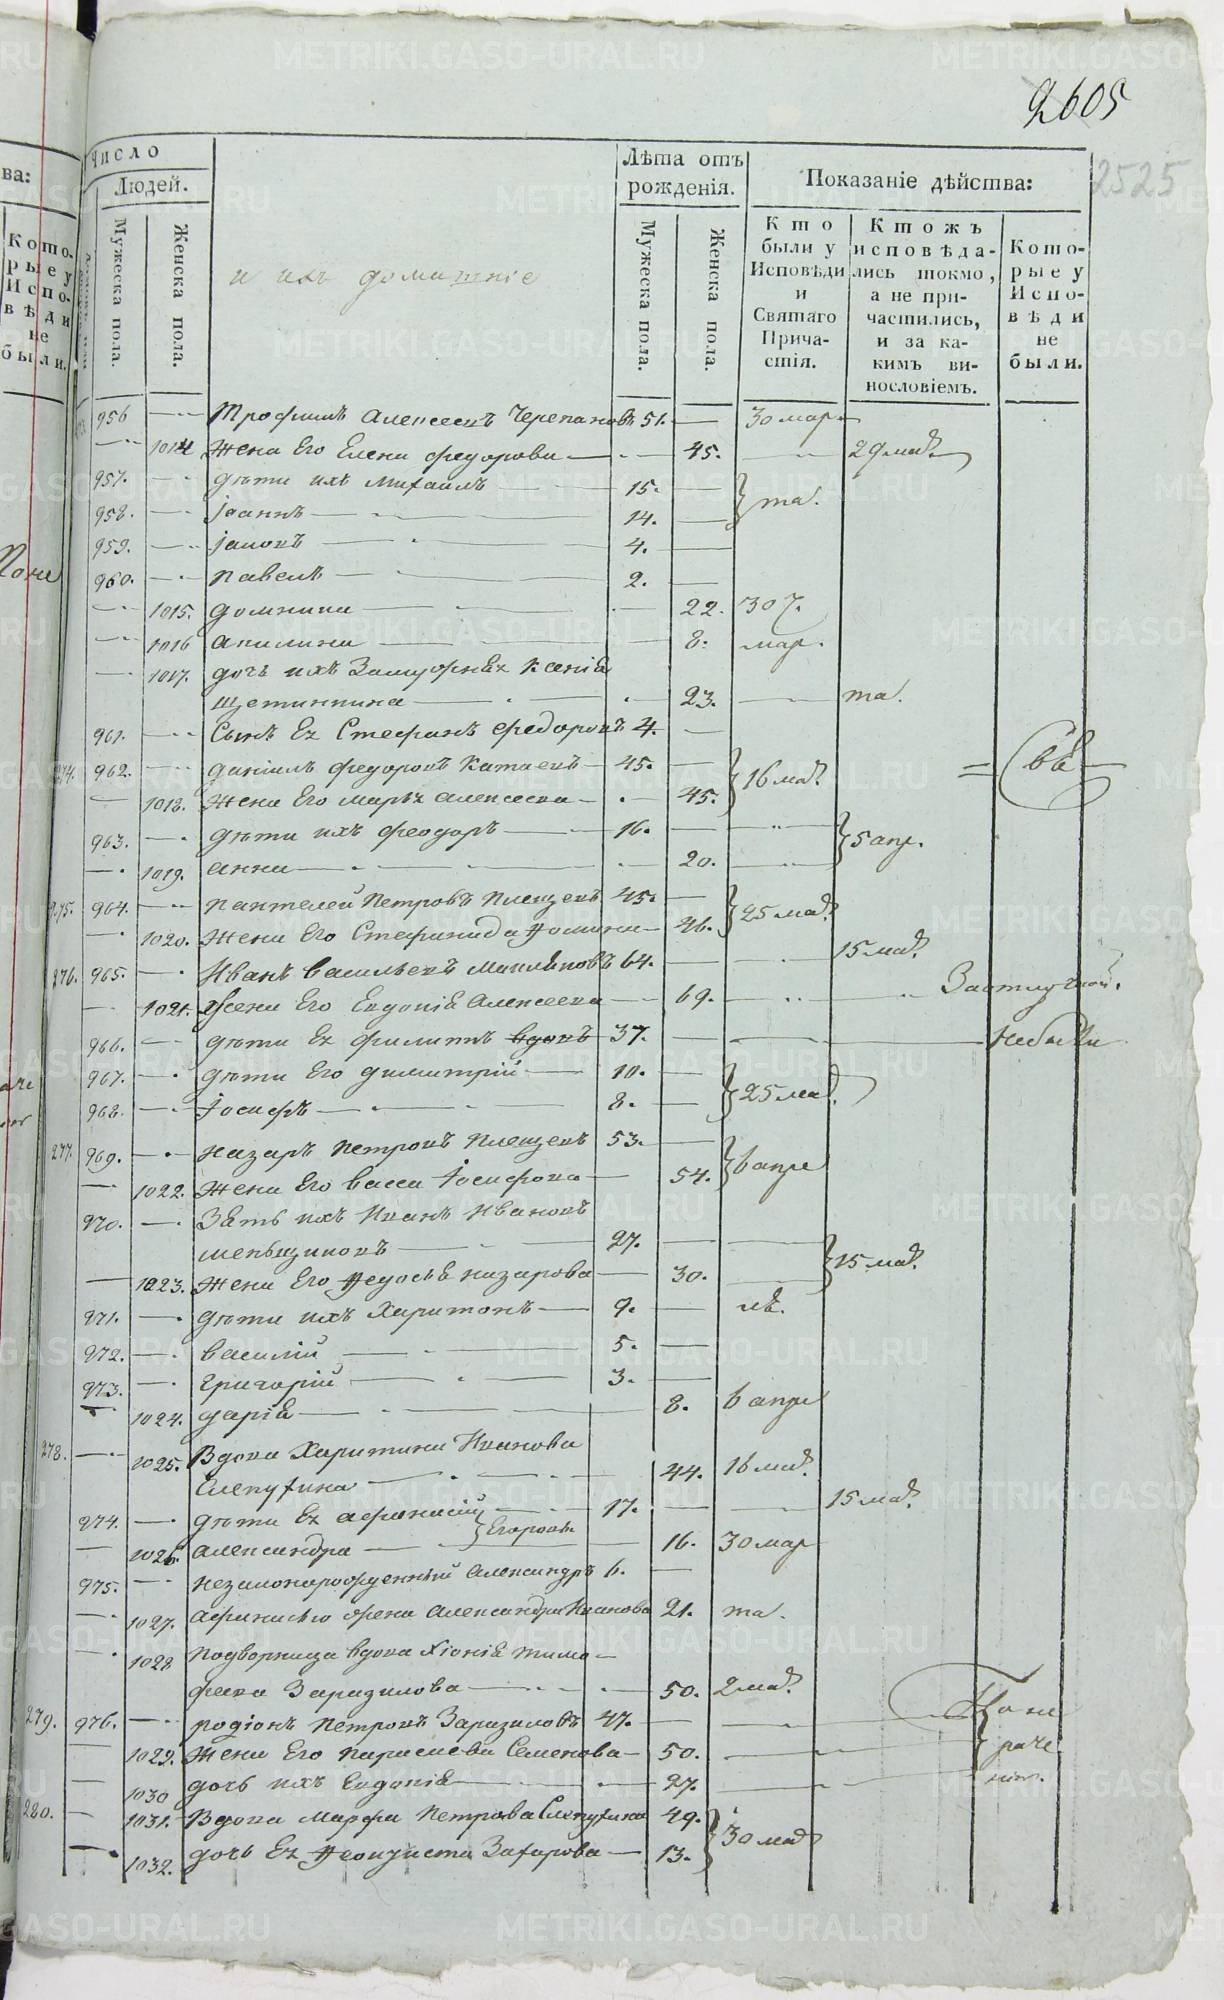 2605
2525
Число
Людей.
Мужеска пола.
Женска пола.
и ихъ домашніе
Лѣта отъ
рожденія.
Мужеска пола.
Женска пола.
Показаніе дѣйства:
Кто
были у
Исповѣди
и
Святаго
Прича-
стія.
Ктожъ
исповѣда-
лись токмо,
а не при-
частились,
и за ка-
кимъ ви-
нословіемъ.
Кото-
рые у
Испо-
вѣди
не
были.
ва:
Кото-
рые у
Испо-
вѣди
не
были.
956 Трофимъ Алексеевъ Черепановъ 51. 30 мар
1014 Жена Его Елена Федорова 45. 29 маія
957. дѣти ихъ Михаилъ 15. та.
958. Іоаннъ 14.
959. Іаковъ 4.
960. Павелъ 2.
1015. Домника 22. 30
1016 Акилина 8. мар.
1017. дочь ихъ Замужняя Ксенія
Щетинкина 23. та.
961. Сынъ Ея Стефанъ Федоровъ 4.
274. 962. Даніилъ Федоровъ Катаевъ 45. 16 маія
1018. Жена Его Марья Алексеева 45.
963. дѣти ихъ Феодоръ 16. 5 апр.
1019. Анна 20.
275. 964. Пантелей Петровъ Плещевъ 45. 25 маія
1020. Жена Его Стефанида Фомина 46.
15 маія
276. 965. Иванъ Васильевъ 64.
1021. Жена Его Евдокія Алексеева 69.
966. дѣти Ея Филиппъ вдовъ 37. Небыли
967. дѣти Его Димитрій 10. 25 маія
968. Іосифъ 8.
277. 969. Назаръ Петровъ Плещевъ 53. 6 апре
1022. Жена Его Васса Іосифова 54.
970. Зять ихъ Иванъ Ивановъ
Меньщиковъ 27. 15 маія
1023. Жена Его Федосья Назарова 30.
971. дѣти ихъ Харитонъ 9.
972. Василій 5.
973. Григорій 3.
1024. Дарія 8. 6 апре
278. 1025. Вдова Харитина Иванова
Слепухина 44. 16 маія
974. дѣти Ея Афонасій 17. 15 маія
Егоровы
1026. Александра 16. 30 мар
975. незаконорожденный Александръ 6.
1027. Афанасью жена Александра Иванова 21. та.
1028 Подворница вдова Хіонія Тимо-
феева Заразилова 50. 2 маія
279. 976. Родіонъ Петровъ Заразиловъ 47. По не
1029. Жена Его Параскева Семенова 50. раче
1030 дочь ихъ Евдокія 27. нію.
280. 1031. Вдова Марфа Петрова Слепухина 49. 30 маія
1032. дочь Ея Феоктиста Захарова 13.
METRIKI.GASO-URAL.RU